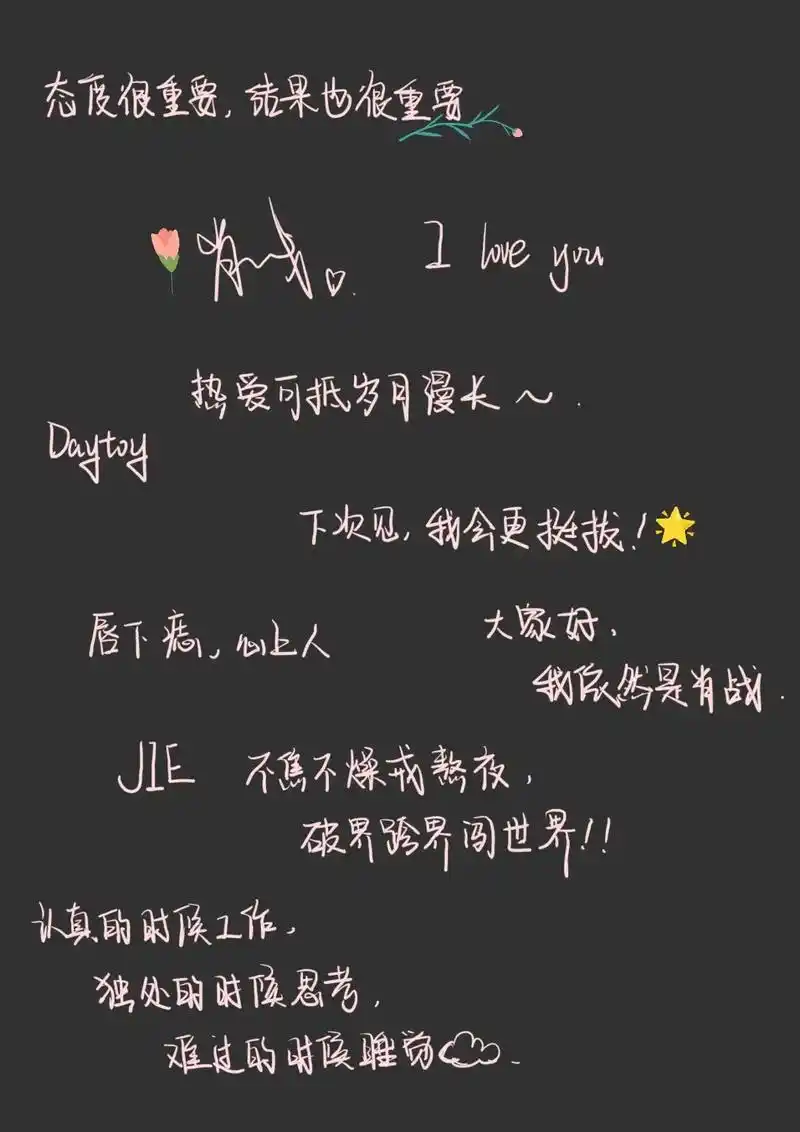 态度很重要,结果也很重要
肖战
I love you
热爱可抵岁月漫长~.
Daytoy
下次见,我会更挺拔!
唇下痣,心上人
大家好,
我依然是肖战.
JIE
不焦不燥戒熬夜,
破界跨界闯世界!!
认真的时候工作,
独处的时候思考,
难过的时候睡觉.